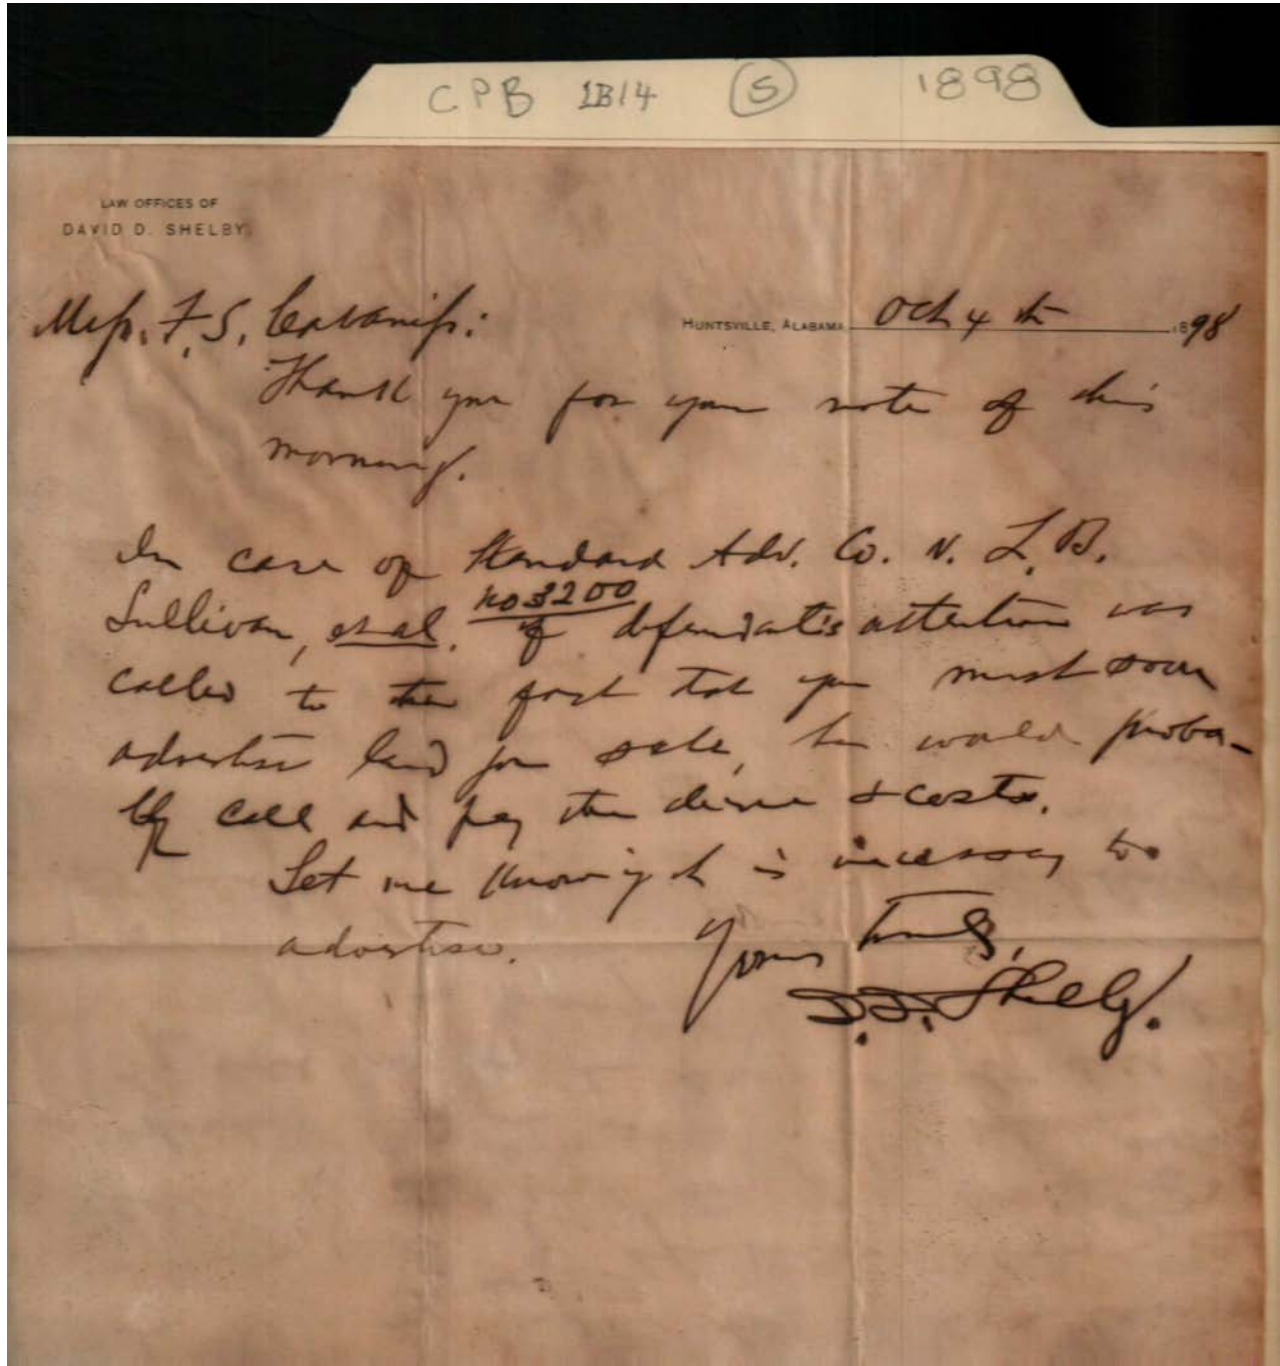 CPB 1B14 S 1898
LAW OFFICES OF
DAVID D. SHELBY
HUNTSVILLE, ALABAMA Oct 4th 1898
Mess. F. S. Cabaniss:
Thank you for your note of this
morning.
In case of Standard Adv. Co. v. L. B.
no 3200
Sullivan, et al. if defendant's attention was
called to the fact that you must soon
advertise land for sale, he would proba-
bly call and pay the decree & costs.
Let me know if it is necessary to
advertise.
Yours truly,
D. D. Shelby.